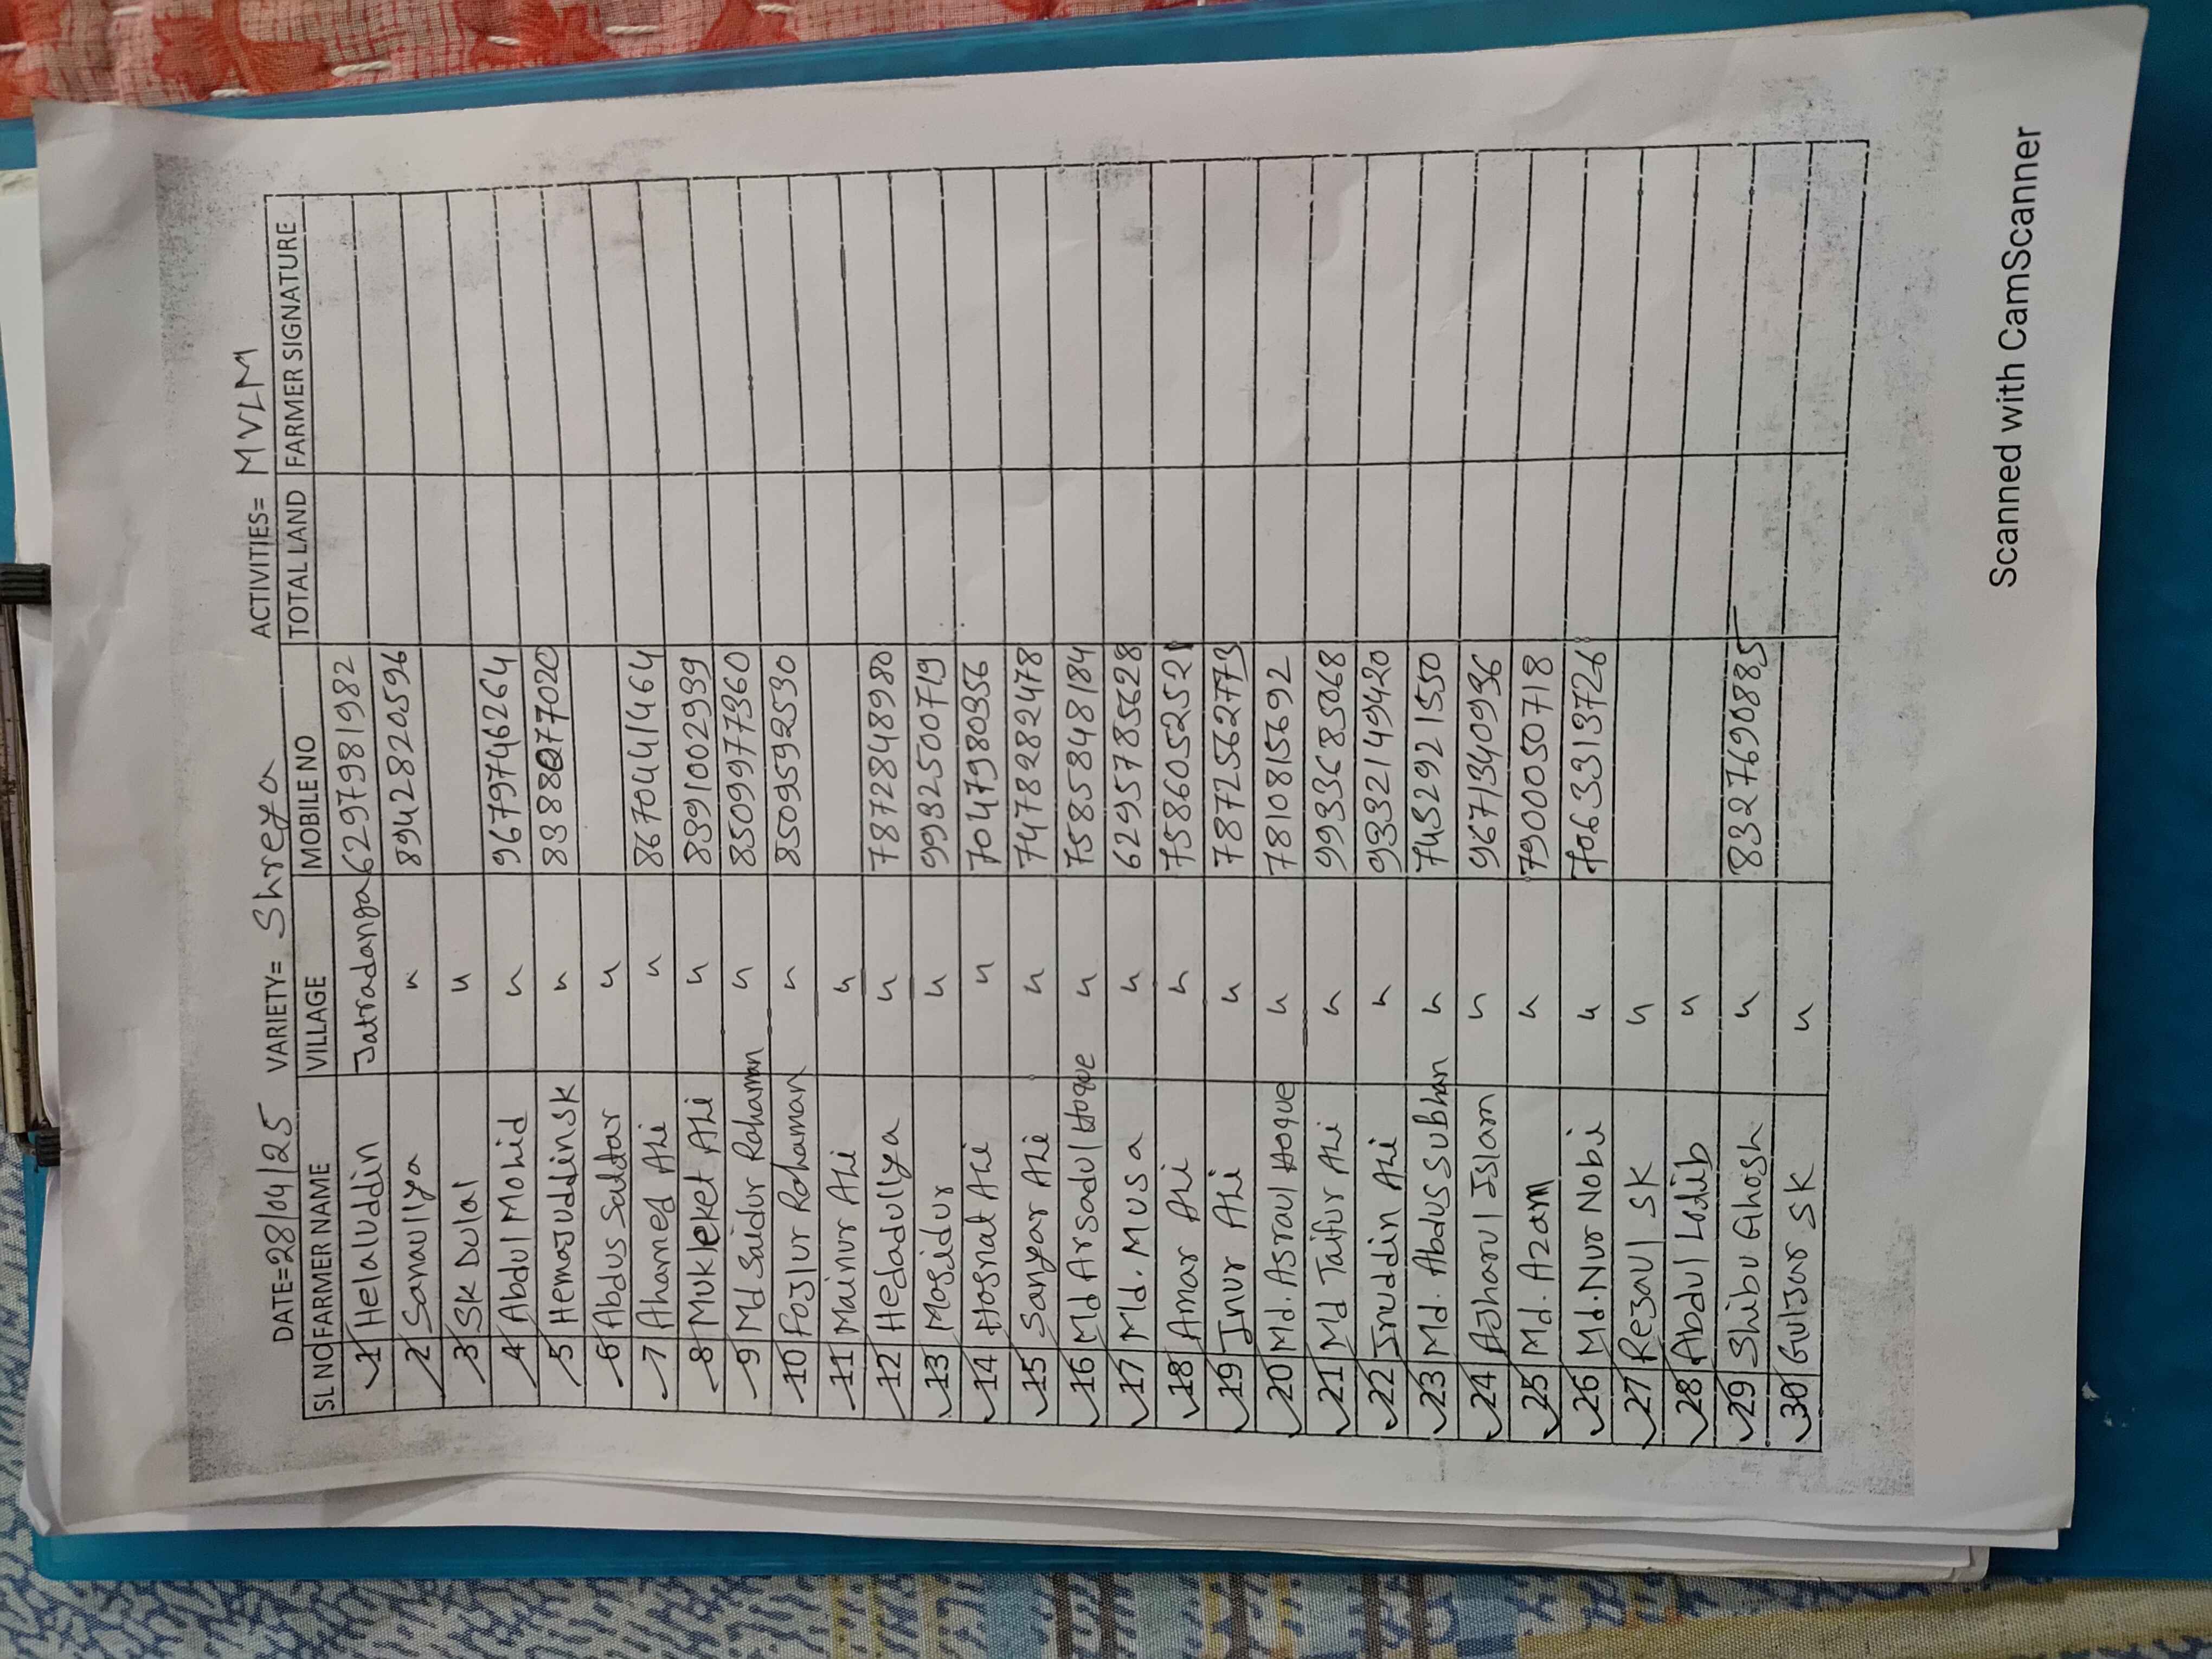 DATE=28/04/25 VARIETY= Shreya ACTIVITIES= MVLM
SL NO FARMER NAME VILLAGE MOBILE NO TOTAL LAND FARMER SIGNATURE
1 Helaluddin Jatradanga 6297981982
2 Sanaullya " 8942820596
3 SK Dulal "
4 Abdul Mohid " 9679746264
5 Hemajuddin SK " 8388277020
6 Abdus Saddar "
7 Ahamed Ali " 8670441464
8 Mukleket Ali " 8391002939
9 Md Saidur Rahaman " 8509977360
10 Fojlur Rahaman " 8509592530
11 Mainur Ali "
12 Hedadullya " 7872848980
13 Mosidur " 9932500719
14 Hosnat Ali " 7047980356
15 Sanyar Ali " 7478282478
16 Md Arsadul Hoque " 7585848184
17 Md. Musa " 6295785628
18 Amar Ali " 7586052521
19 Inur Ali " 7872562773
20 Md. Asraul Hoque " 7810815692
21 Md Taifur Ali " 9933685068
22 Inuddin Ali " 9332149420
23 Md. Abdus Subhan " 7432921550
24 Ajharul Islam " 9671340936
25 Md. Azam " 7900050718
26 Md. Nur Nobi " 7063313726
27 Rezaul SK "
28 Abdul Ladib "
29 Shibu Ghosh " 8327690885
30 Guljar SK "
Scanned with CamScanner